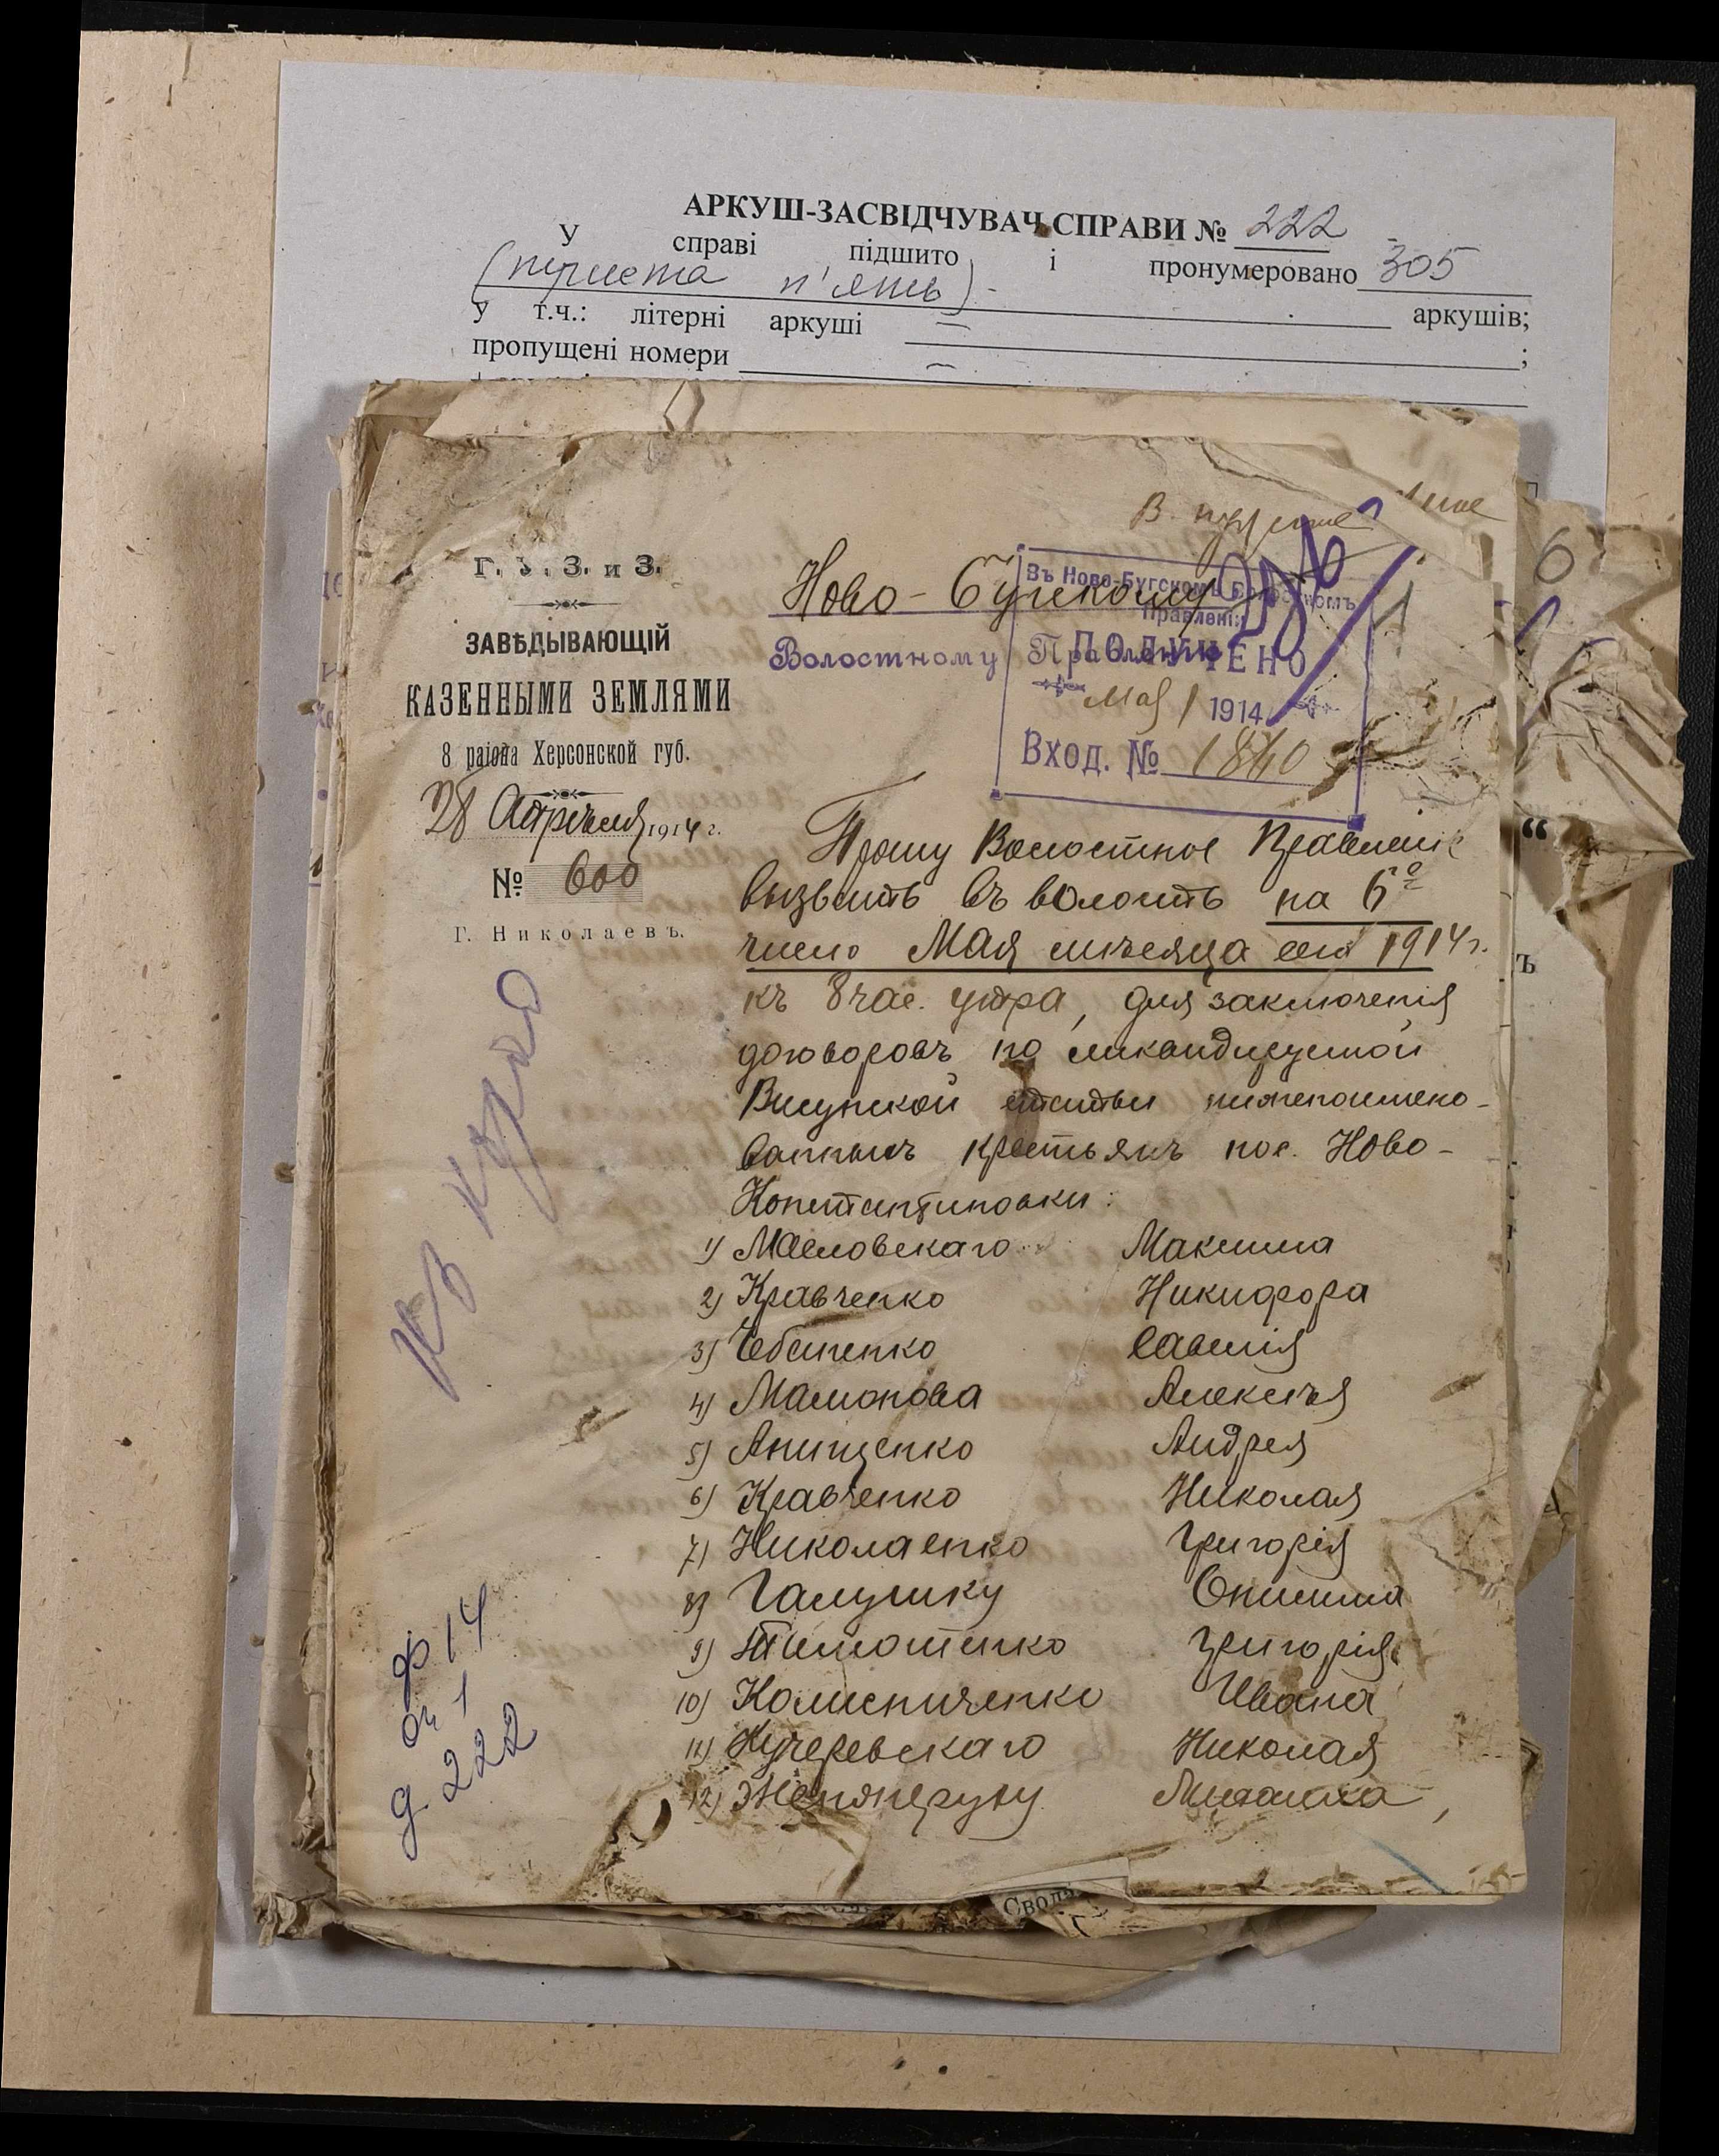 АРКУШ-ЗАСВІДЧУВАЧ СПРАВИ № 222
У справі підшито і пронумеровано 305
(триста п'ять) аркушів;
у т.ч.: літерні аркуші —
пропущені номери — ;
Г. У. З. и З.
ЗАВѢДЫВАЮЩІЙ
КАЗЕННЫМИ ЗЕМЛЯМИ
8 раіона Херсонской губ.
28 Апрѣля 1914 г.
№ 600
Г. Николаевъ.
Ново-Бугскому
Волостному Правленію
Въ Ново-Бугскомъ Волостномъ
Правленіи
ПОЛУЧЕНО
Мая 1 1914
Вход. № 1840
Прошу Волостное Правленіе
вызвать въ волость на 6го
число Мая мѣсяца сего 1914 г.
къ 8 час. утра, для заключенія
договоровъ по ликвидируемой
Висунской статьи нижепоимено-
ванныхъ крестьянъ пос. Ново-
Константиновки:
1) Масловскаго Максима
2) Кравченко Никифора
3) Чебаненко Савелія
4) Мамонова Алексѣя
5) Анищенко Андрея
6) Кравченко Николая
7) Николаенко Григорія
8) Галушку Онисима
9) Тимошенко Григорія
10) Колисниченко Ивана
11) Кучеревскаго Николая
12) Михаила,
ф 14
оп 1
д 222
6
Сводъ